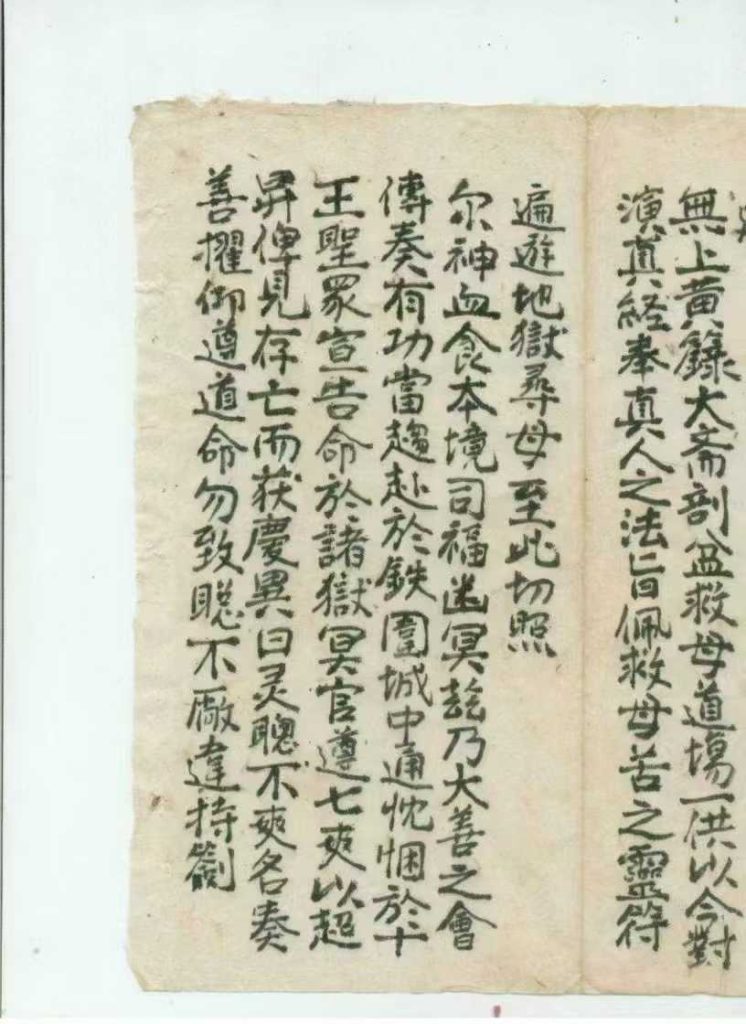 無上黄籙大斋剖盆救母道場一供以今對
演真経奉真人之法旨佩救母苦之靈符
遍遊地獄尋母至此切照
尔神血食本境司福幽冥兹乃大善之會
傳奏有功當趨赴於鉄圍城中通忱悃於十
王聖眾宣告命於諸獄冥官遵七爽以超
昇俾見存亡而获慶異日灵聰不爽名奏
善擢御遵道命勿致聪不厰違持劄